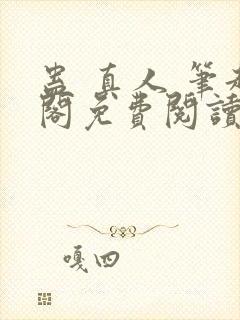 蠱真人筆趣
閣免費閱讀
嘎四